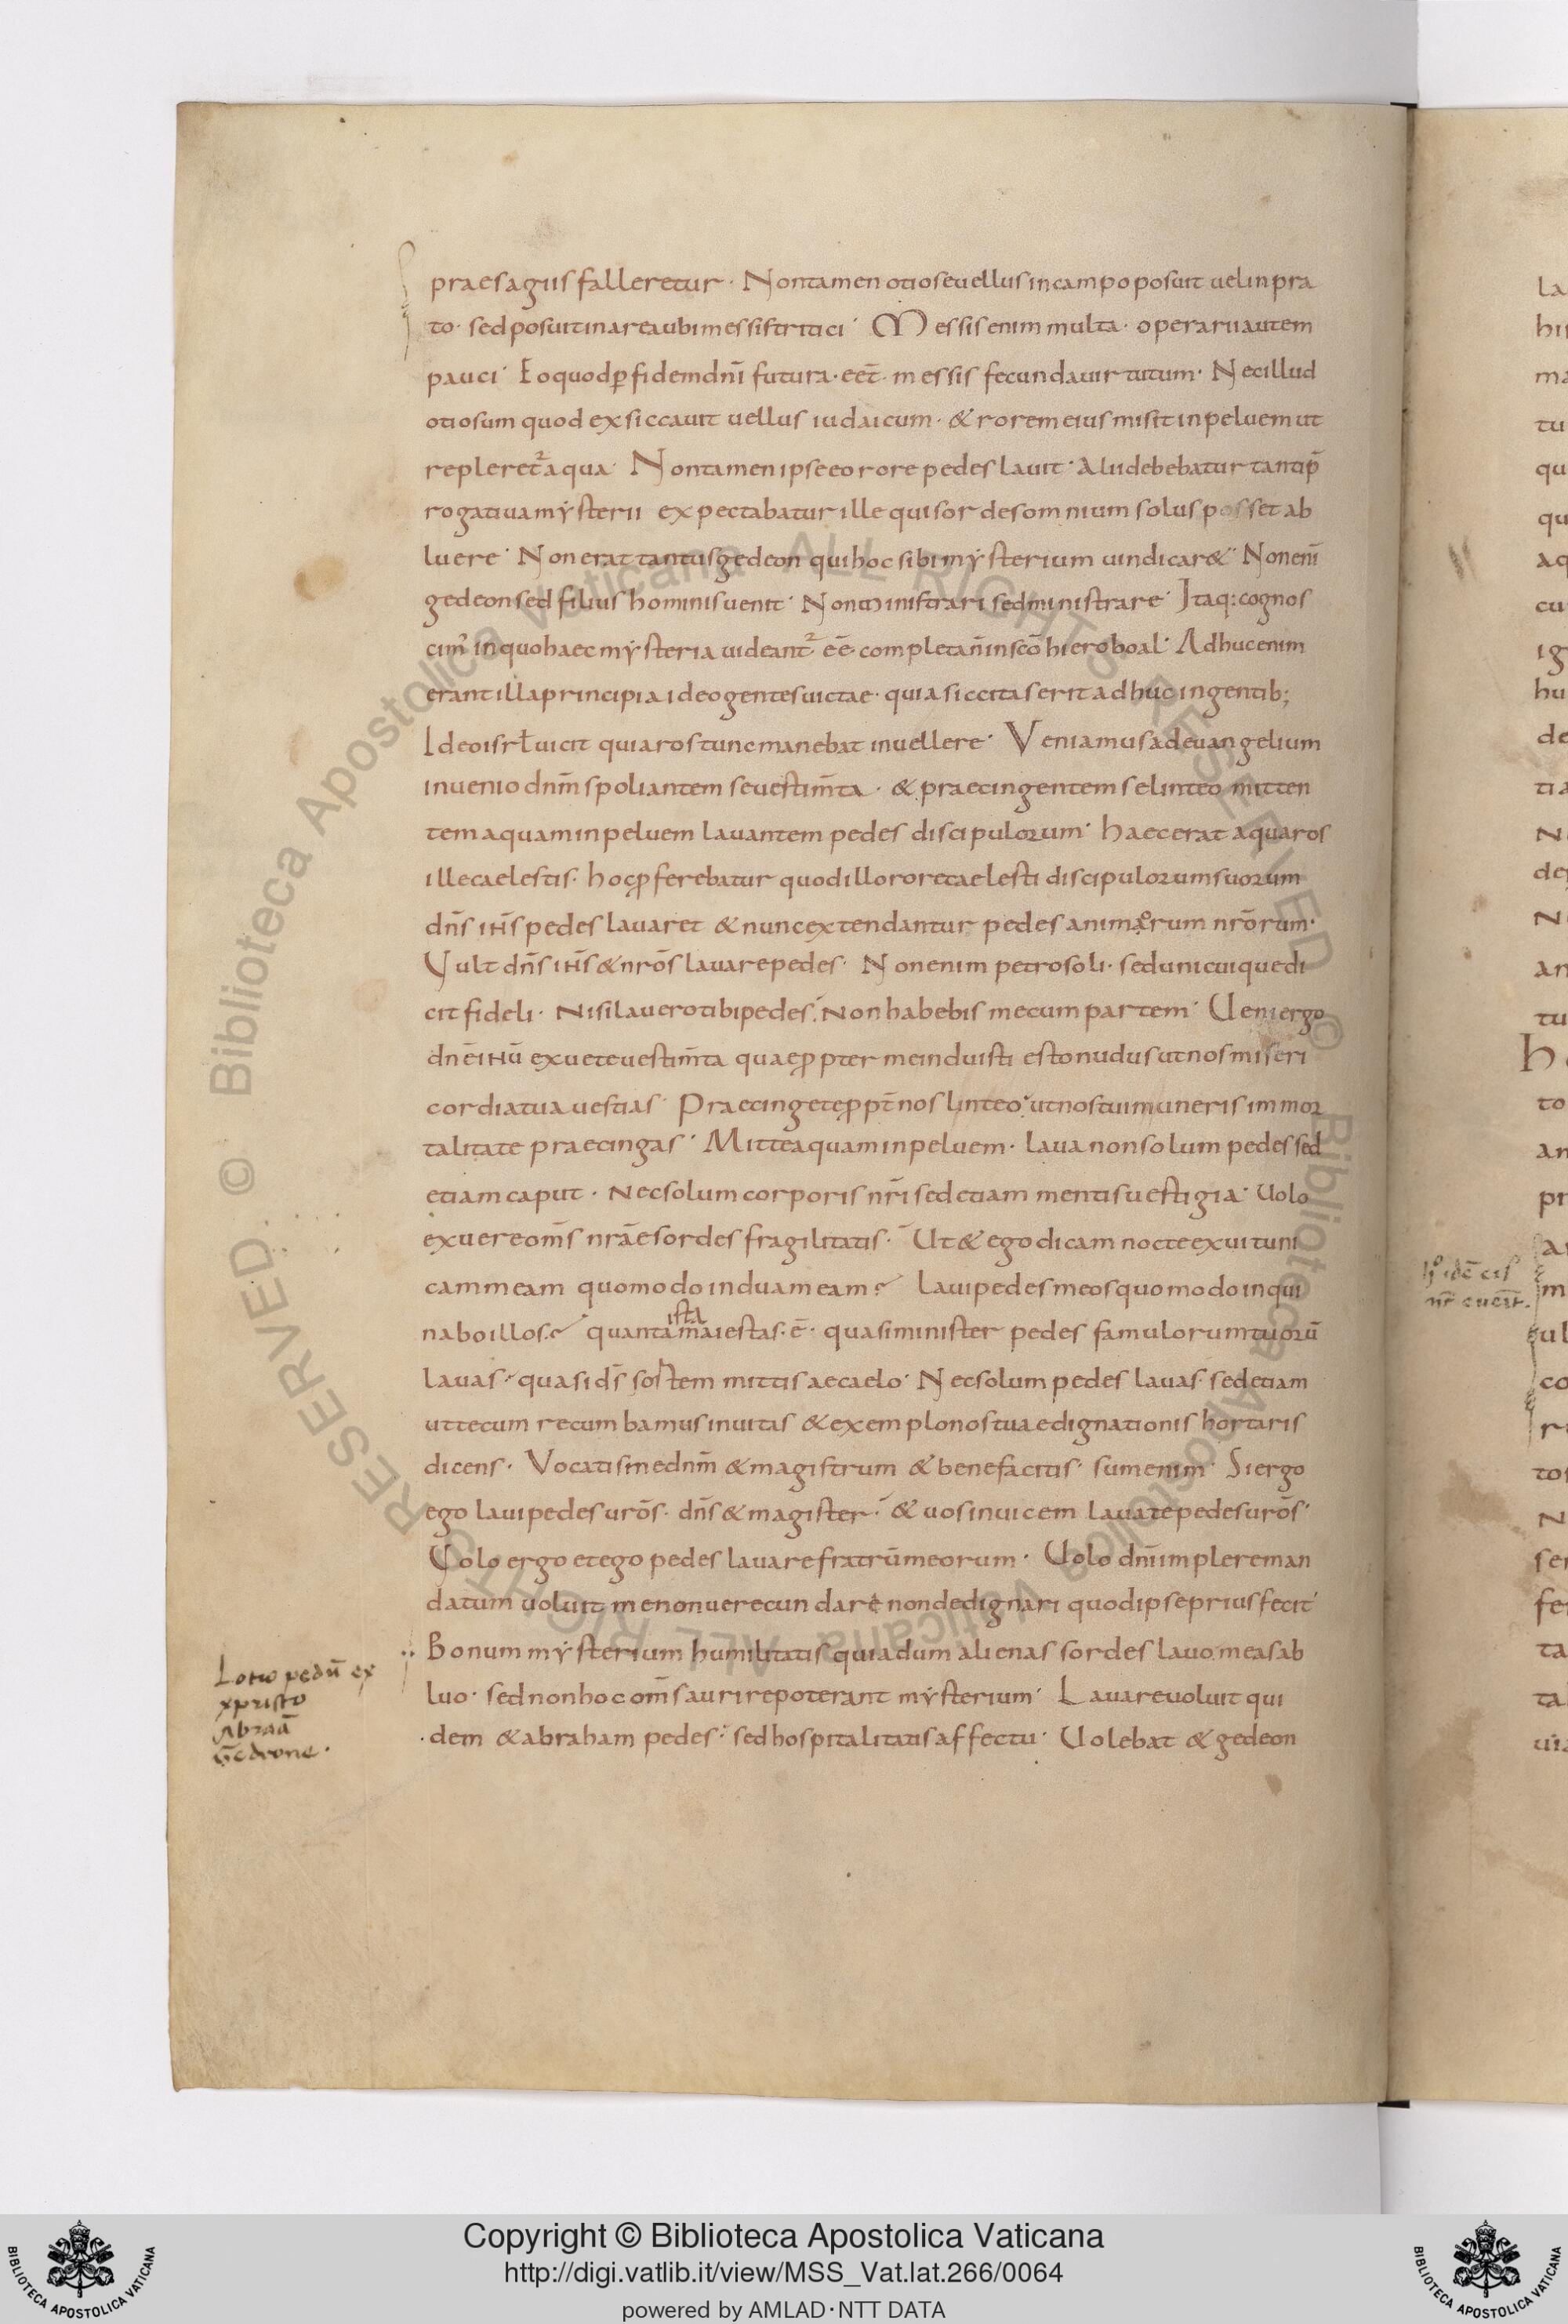 praesagiis falleretur · Non tamen otiose vellus in campo posuit vel in pra
to · sed posuit in area ubi messis tritici · Messis enim multa · operarii autem
pauci · Eo quod p̱ fidem dnī futura · eēt · messis fecunda virtutum · Nec illud
otiosum quod exsiccavit vellus iudaicum · & rorem eius misit in peluem ut
repleret᷑ aqua · Non tamen ipse eo rore pedes lavit · Alii debebatur tanti p̄
rogativa mẏsterii expectabatur ille qui sordes omnium solus posset ab
luere · Non erat tantus gedeon qui hoc sibi mẏsterium vindicar& · Non enī
gedeon sed filius hominis venit · Non ministrari sed ministrare · Itaq: cognos
cim᷒ in quo haec mẏsteria videant᷑ eē · completa n̄ in scō hieroboal · Adhuc enim
erant illa principia ideo gentes victae · quia siccitas erit adhuc in gentib;
Ideo isrł vicit quia ros tunc manebat in vellere · Veniamus ad evangelium
invenio dnm̄ spoliantem se vestim̄ta · & praecingentem se linteo mitten
tem aquam in peluem lavantem pedes discipulorum · haec erat aqua ros
ille caelestis · hoc p̱ferebatur quod illo rore caelesti discipulorum suorum
dn̄s ih̄s pedes lavaret & nunc extendantur pedes animarum nrōrum ·
Vult dn̄s ih̄s & nrōs lavare pedes · Non enim petro soli · sed unicuique di
cit fideli · Nisi lavero tibi pedes · Non habebis mecum partem · Veni ergo
dnē ihū exue te vestim̄ta quae p̱pter me induisti esto nudus ut nos miseri
cordia tua vestias · Praecinge te p̱pt̄ nos linteo · ut nos tui muneris immor
talitate praecingas · Mitte aquam in peluem · lava non solum pedes sed
etiam caput · Nec solum corporis nrī sed etiam mentis vestigia · Volo
exuere om̄s nrāe sordes fragilitatis · Ut & ego dicam nocte exui tuni
cam meam quomodo induam eam? Lavi pedes meos quomodo inqui
nabo illos? quanta ista maiestas · ē · quasi minister pedes famulorum tuorū
lavas · quasi ds̄ sortem mittis ae caelo · Nec solum pedes lavas · sed etiam
ut tecum recumbamus invitas & exemplo nos tuae dignationis hortaris
dicens · Vocatis me dnm̄ & magistrum & bene facitis · sum enim · Si ergo
ego lavi pedes vrōs · dn̄s & magister · & vos invicem lavate pedes vrōs ·
Volo ergo et ego pedes lavare fratrū meorum · Volo dnī implere man
datum voluit me non verecundare non dedignari quod ipse prius fecit ·
Bonum mẏsterium humilitatis quia dum alienas sordes lavo meas ab
luo · sed non hoc om̄s aurire poterant mẏsterium · Lavare voluit qui
dem & abraham pedes · sed hospitalitatis affectu · Volebat & gedeon
Lotio pedū ex
xpristo
Abraā
Gedeone ·
Copyright © Biblioteca Apostolica Vaticana
http://digi.vatlib.it/view/MSS_Vat.lat.266/0064
powered by AMLAD·NTT DATA
BIBLIOTECA APOSTOLICA VATICANA
BIBLIOTECA APOSTOLICA VATICANA